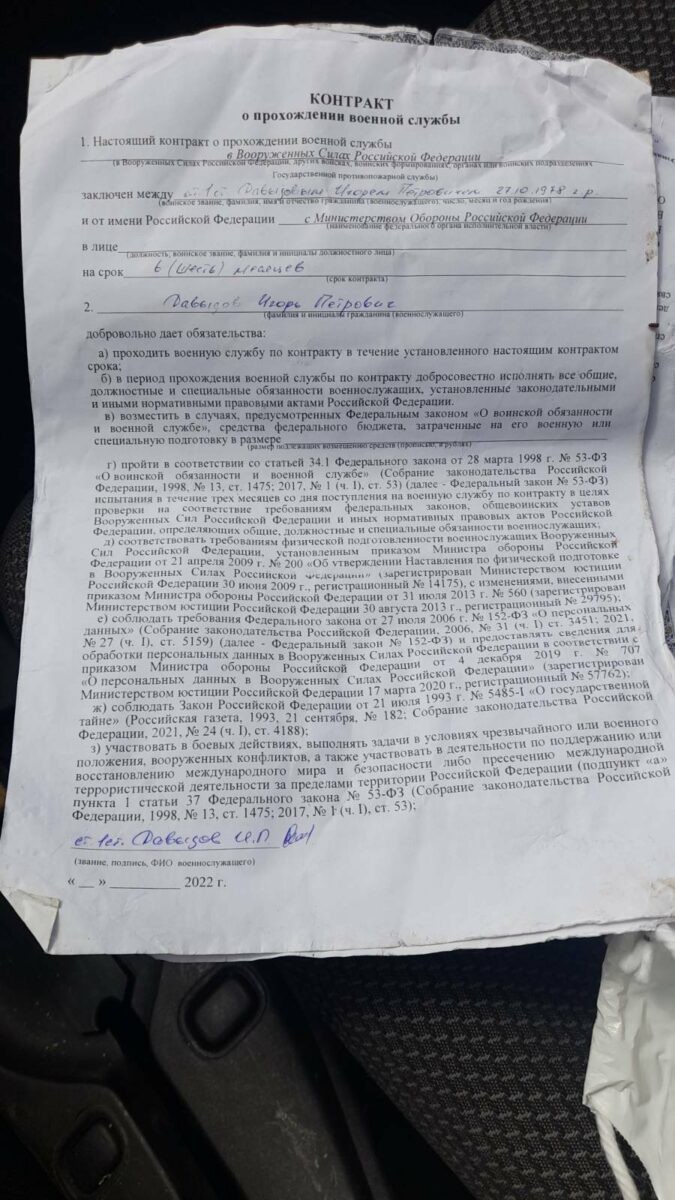 КОНТРАКТ
о прохождении военной службы
1. Настоящий контракт о прохождении военной службы
в Вооруженных Силах Российской Федерации
(в Вооруженных Силах Российской Федерации, других войсках, воинских формированиях, органах или воинских подразделениях
Государственной противопожарной службы)
заключен между ст. 1 ст. Давыдовым Игорем Петровичем 27.10.1978 г.р.
(воинское звание, фамилия, имя и отчество гражданина (военнослужащего), число, месяц и год рождения)
и от имени Российской Федерации с Министерством Обороны Российской Федерации
(наименование федерального органа исполнительной власти)
в лице
(должность, воинское звание, фамилия и инициалы должностного лица)
на срок 6 (шесть) месяцев
(срок контракта)
2. Давыдов Игорь Петрович
(фамилия и инициалы гражданина (военнослужащего)
добровольно дает обязательства:
а) проходить военную службу по контракту в течение установленного настоящим контрактом
срока;
б) в период прохождения военной службы по контракту добросовестно исполнять все общие,
должностные и специальные обязанности военнослужащих, установленные законодательными
и иными нормативными правовыми актами Российской Федерации.
в) возместить в случаях, предусмотренных Федеральным законом «О воинской обязанности
и военной службе», средства федерального бюджета, затраченные на его военную или
специальную подготовку в размере
(размер подлежащих возмещению средств (прописью, в рублях)
г) пройти в соответствии со статьей 34.1 Федерального закона от 28 марта 1998 г. № 53-ФЗ
«О воинской обязанности и военной службе» (Собрание законодательства Российской
Федерации, 1998, № 13, ст. 1475; 2017, № 1 (ч. I), ст. 53) (далее - Федеральный закон № 53-ФЗ)
испытания в течение трех месяцев со дня поступления на военную службу по контракту в целях
проверки на соответствие требованиям федеральных законов, общевоинских уставов
Вооруженных Сил Российской Федерации и иных нормативных правовых актов Российской
Федерации, определяющих общие, должностные и специальные обязанности военнослужащих;
д) соответствовать требованиям физической подготовленности военнослужащих Вооруженных
Сил Российской Федерации, установленным приказом Министра обороны Российской
Федерации от 21 апреля 2009 г. № 200 «Об утверждении Наставления по физической подготовке
в Вооруженных Силах Российской Федерации» (зарегистрирован Министерством юстиции
Российской Федерации 30 июня 2009 г., регистрационный № 14175), с изменениями, внесенными
приказом Министра обороны Российской Федерации от 31 июля 2013 г. № 560 (зарегистрирован
Министерством юстиции Российской Федерации 30 августа 2013 г., регистрационный № 29795);
е) соблюдать требования Федерального закона от 27 июля 2006 г. № 152-ФЗ «О персональных
данных» (Собрание законодательства Российской Федерации, 2006, № 31 (ч. I) ст. 3451; 2021,
№ 27 (ч. I), ст. 5159) (далее - Федеральный закон № 152-ФЗ) и предоставлять сведения для
обработки персональных данных в Вооруженных Силах Российской Федерации в соответствии с
приказом Министра обороны Российской Федерации от 4 декабря 2019 г. № 707
«О персональных данных в Вооруженных Силах Российской Федерации» (зарегистрирован
Министерством юстиции Российской Федерации 17 марта 2020 г., регистрационный № 57762);
ж) соблюдать Закон Российской Федерации от 21 июля 1993 г. № 5485-I «О государственной
тайне» (Российская газета, 1993, 21 сентября, № 182; Собрание законодательства Российской
Федерации, 2021, № 24 (ч. I), ст. 4188);
з) участвовать в боевых действиях, выполнять задачи в условиях чрезвычайного или военного
положения, вооруженных конфликтов, а также участвовать в деятельности по поддержанию или
восстановлению международного мира и безопасности либо пресечению международной
террористической деятельности за пределами территории Российской Федерации (подпункт «а»
пункта 1 статьи 37 Федерального закона № 53-ФЗ (Собрание законодательства Российской
Федерации, 1998, № 13, ст. 1475; 2017, № 1 (ч. I), ст. 53);
ст. 1 ст. Давыдов И.П.
(звание, подпись, ФИО военнослужащего)
« __ » __________ 2022 г.